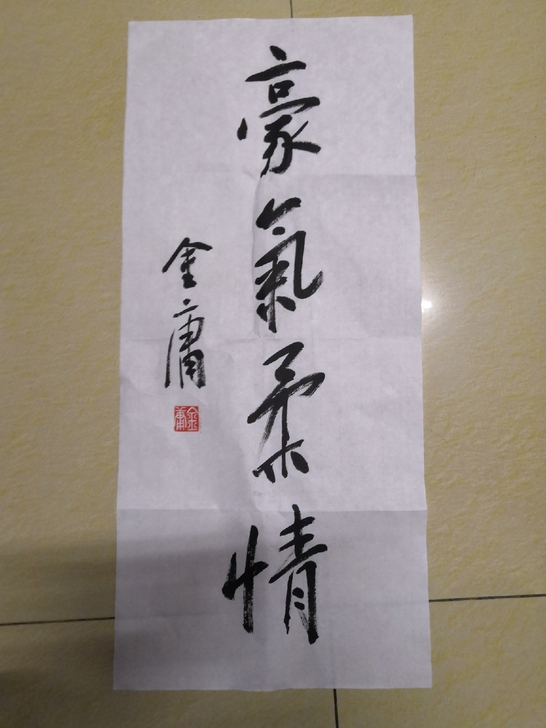 豪氣柔情
金庸
金庸